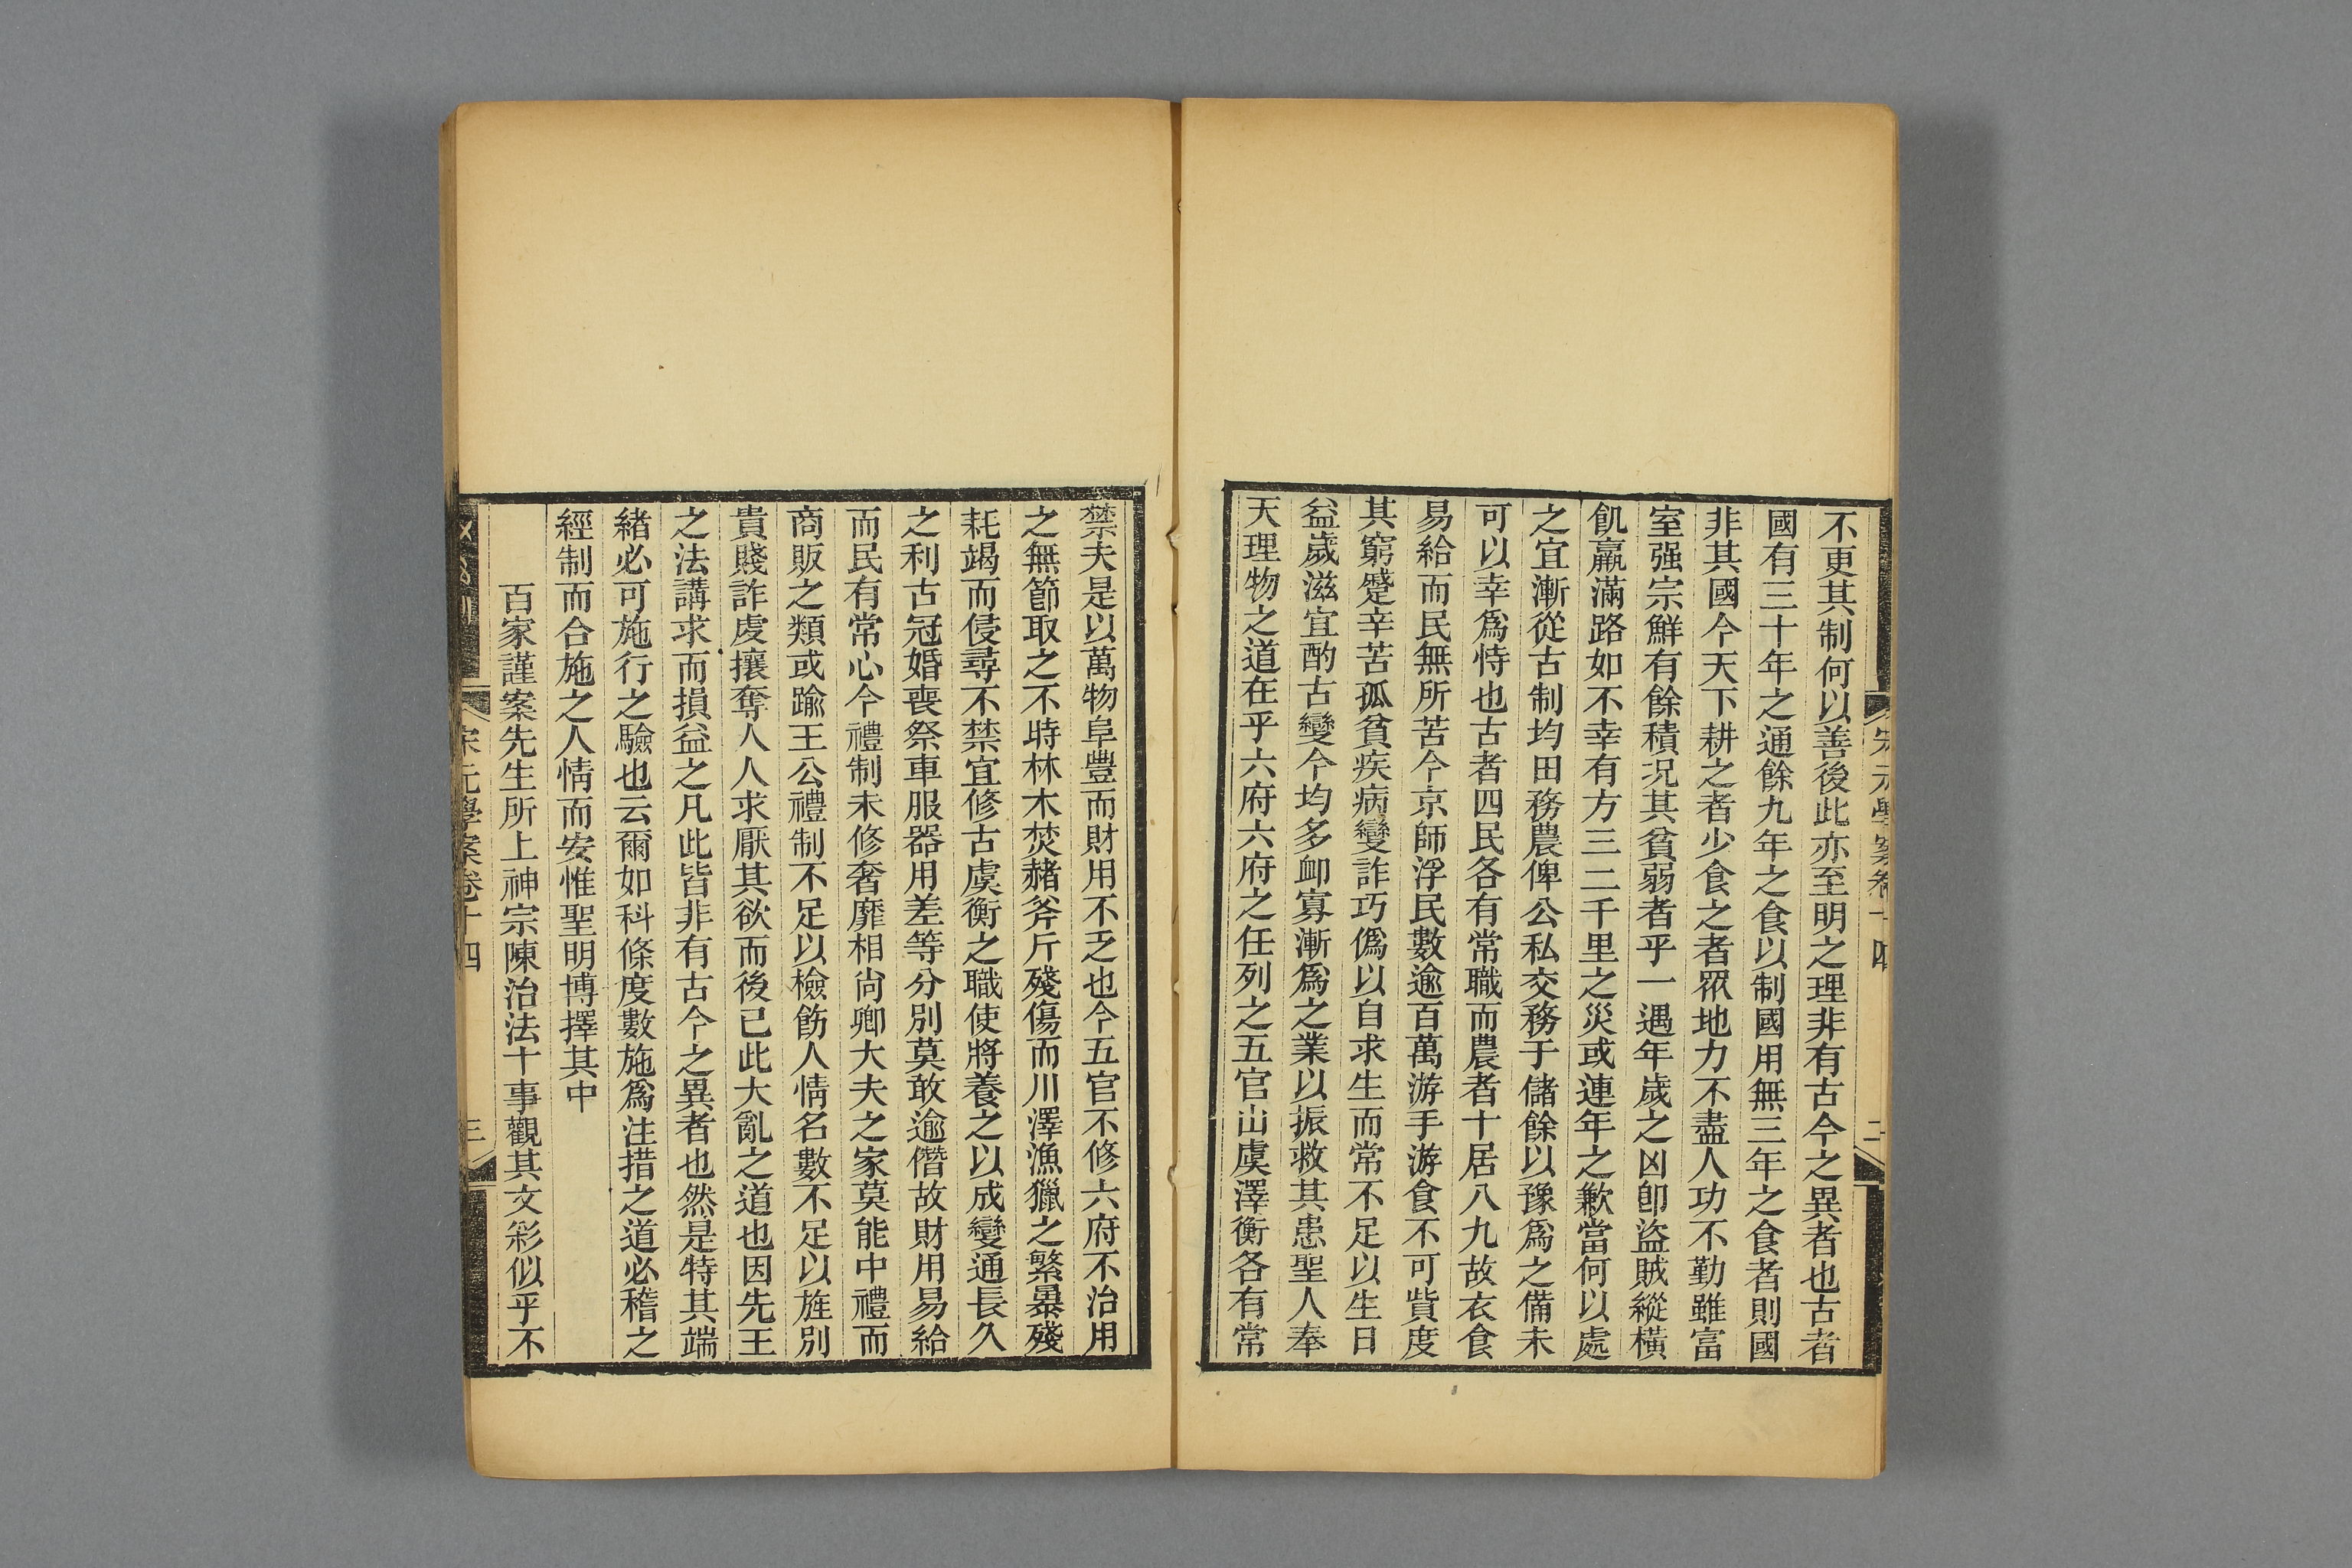 不更其制何以善後此亦至明之理非有古今之異者也古者
國有三十年之通餘九年之食以制國用無三年之食者則國
非其國今天下耕之者少食之者眾地力不盡人功不勤雖富
室强宗鮮有餘積况其貧弱者乎一遇年歲之凶卽盜賊縱橫
飢羸滿路如不幸有方三二千里之災或連年之歉當何以處
之宜漸從古制均田務農俾公私交務于儲餘以豫爲之備未
可以幸爲恃也古者四民各有常職而農者十居八九故衣食
易給而民無所苦今京師浮民數逾百萬游手游食不可貲度
其窮蹙辛苦孤貧疾病變詐巧僞以自求生而常不足以生日
益歲滋宜酌古變今均多卹寡漸爲之業以振救其患聖人奉
天理物之道在乎六府六府之任列之五官山虞澤衡各有常
宋元學案卷十四
二
禁夫是以萬物阜豐而財用不乏也今五官不修六府不治用
之無節取之不時林木焚赭斧斤殘傷而川澤漁獵之繁暴殘
耗竭而侵尋不禁宜修古虞衡之職使將養之以成變通長久
之利古冠婚喪祭車服器用差等分別莫敢逾僭故財用易給
而民有常心今禮制未修奢靡相尙卿大夫之家莫能中禮而
商販之類或踰王公禮制不足以檢飭人情名數不足以旌別
貴賤詐虔攘奪人人求厭其欲而後已此大亂之道也因先王
之法講求而損益之凡此皆非有古今之異者也然是特其端
緒必可施行之驗也云爾如科條度數施爲注措之道必稽之
經制而合施之人情而安惟聖明博擇其中
百家謹案先生所上神宗陳治法十事觀其文彩似乎不
宋元學案卷十四
三